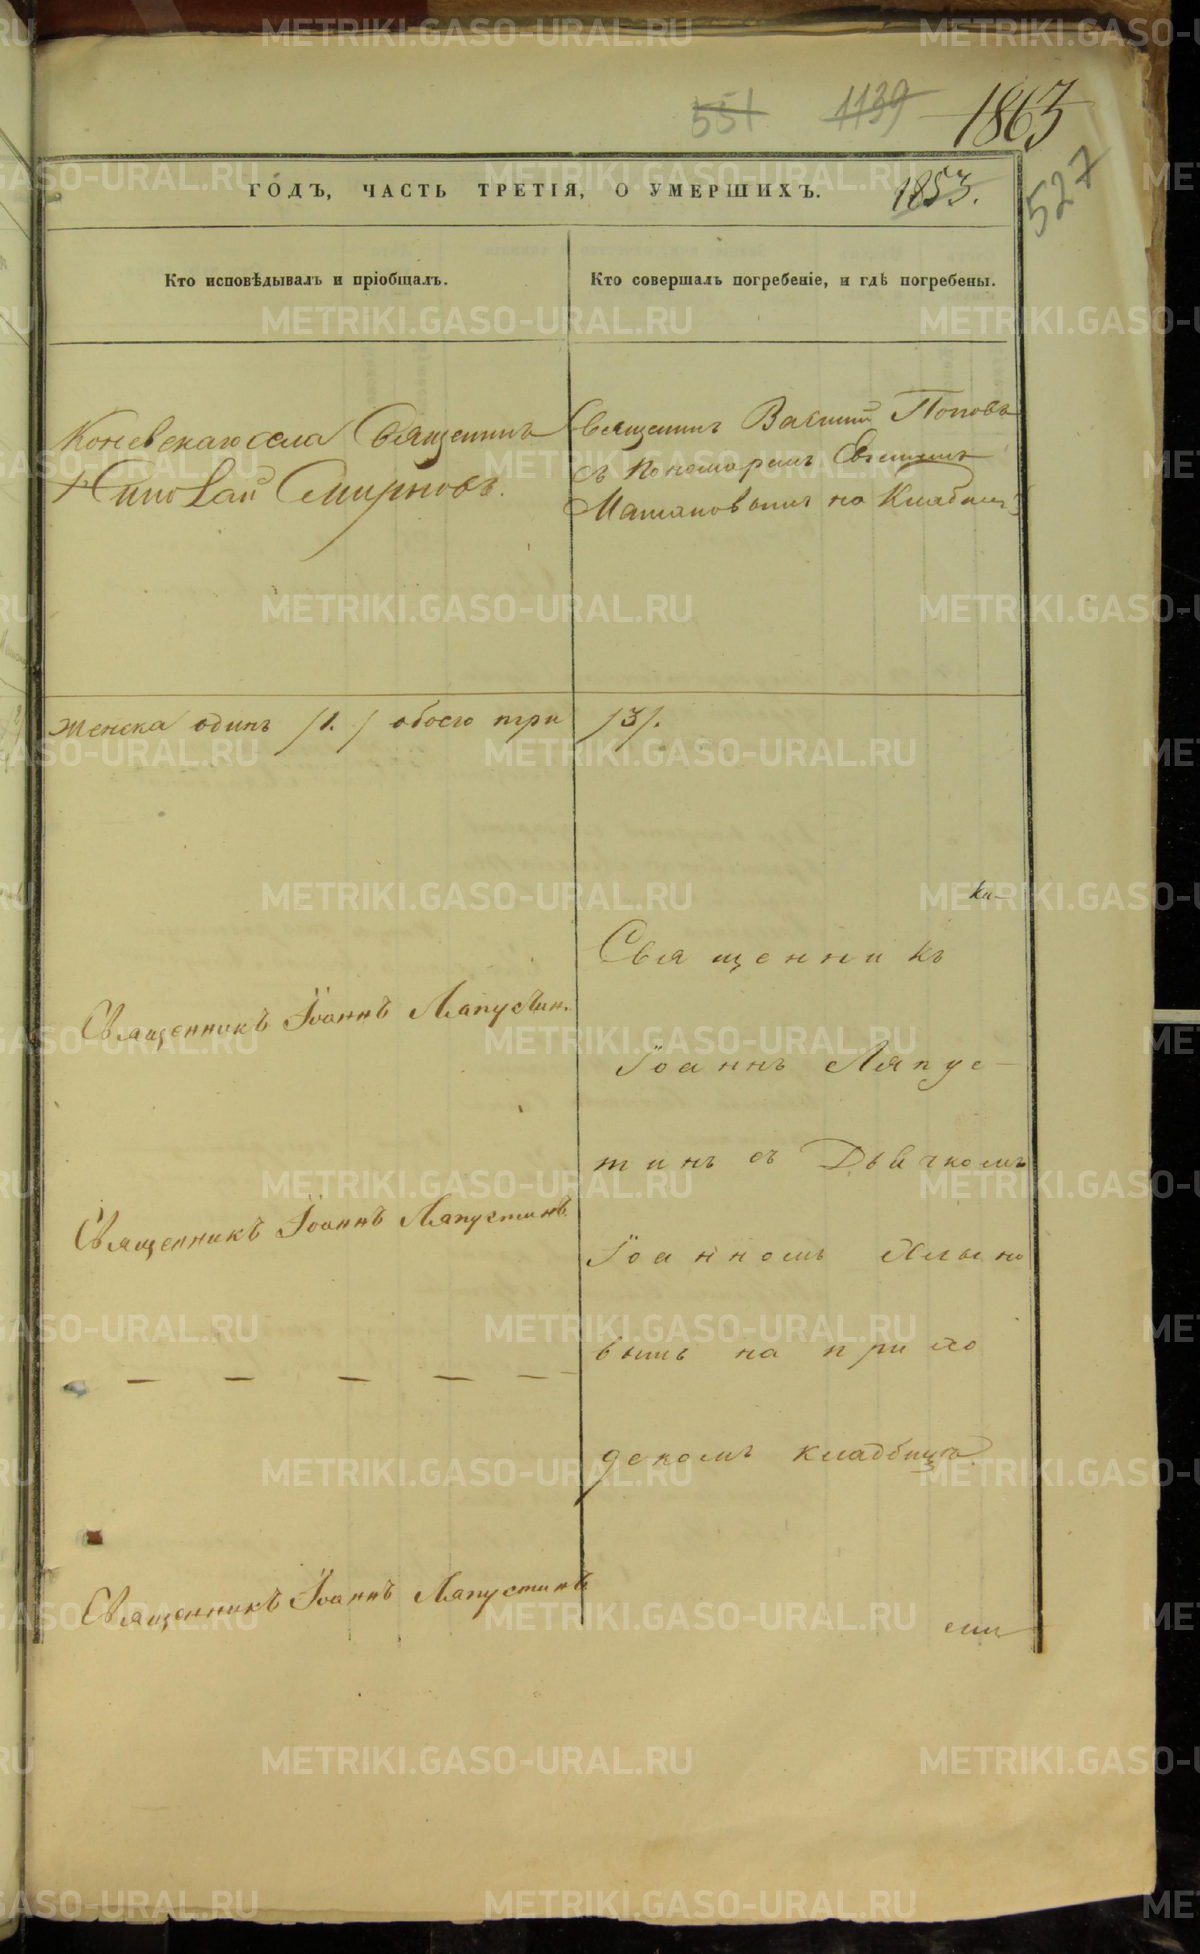 551 1139 1863
527
ГОДЪ, ЧАСТЬ ТРЕТІЯ, О УМЕРШИХЪ. 1853.
Кто исповѣдывалъ и пріобщалъ.
Кто совершалъ погребеніе, и гдѣ погребены.
Коневскаго села Священникъ
Николай Смирновъ.
Священникъ Василий Поповъ
съ Пономаремъ
на Кладбищѣ
Женска одинъ /1./ обоего три /3/.
Священникъ Іоаннъ Ляпустин.
Священникъ Іоаннъ Ляпустинъ
— — — — —
Священникъ Іоаннъ Ляпустинъ
Священникъ
Іоаннъ Ляпус-
тинъ съ Дьячкомъ
Іоанномъ Хлыно
вымъ на прихо
дскомъ кладбищѣ.
METRIKI.GASO-URAL.RU